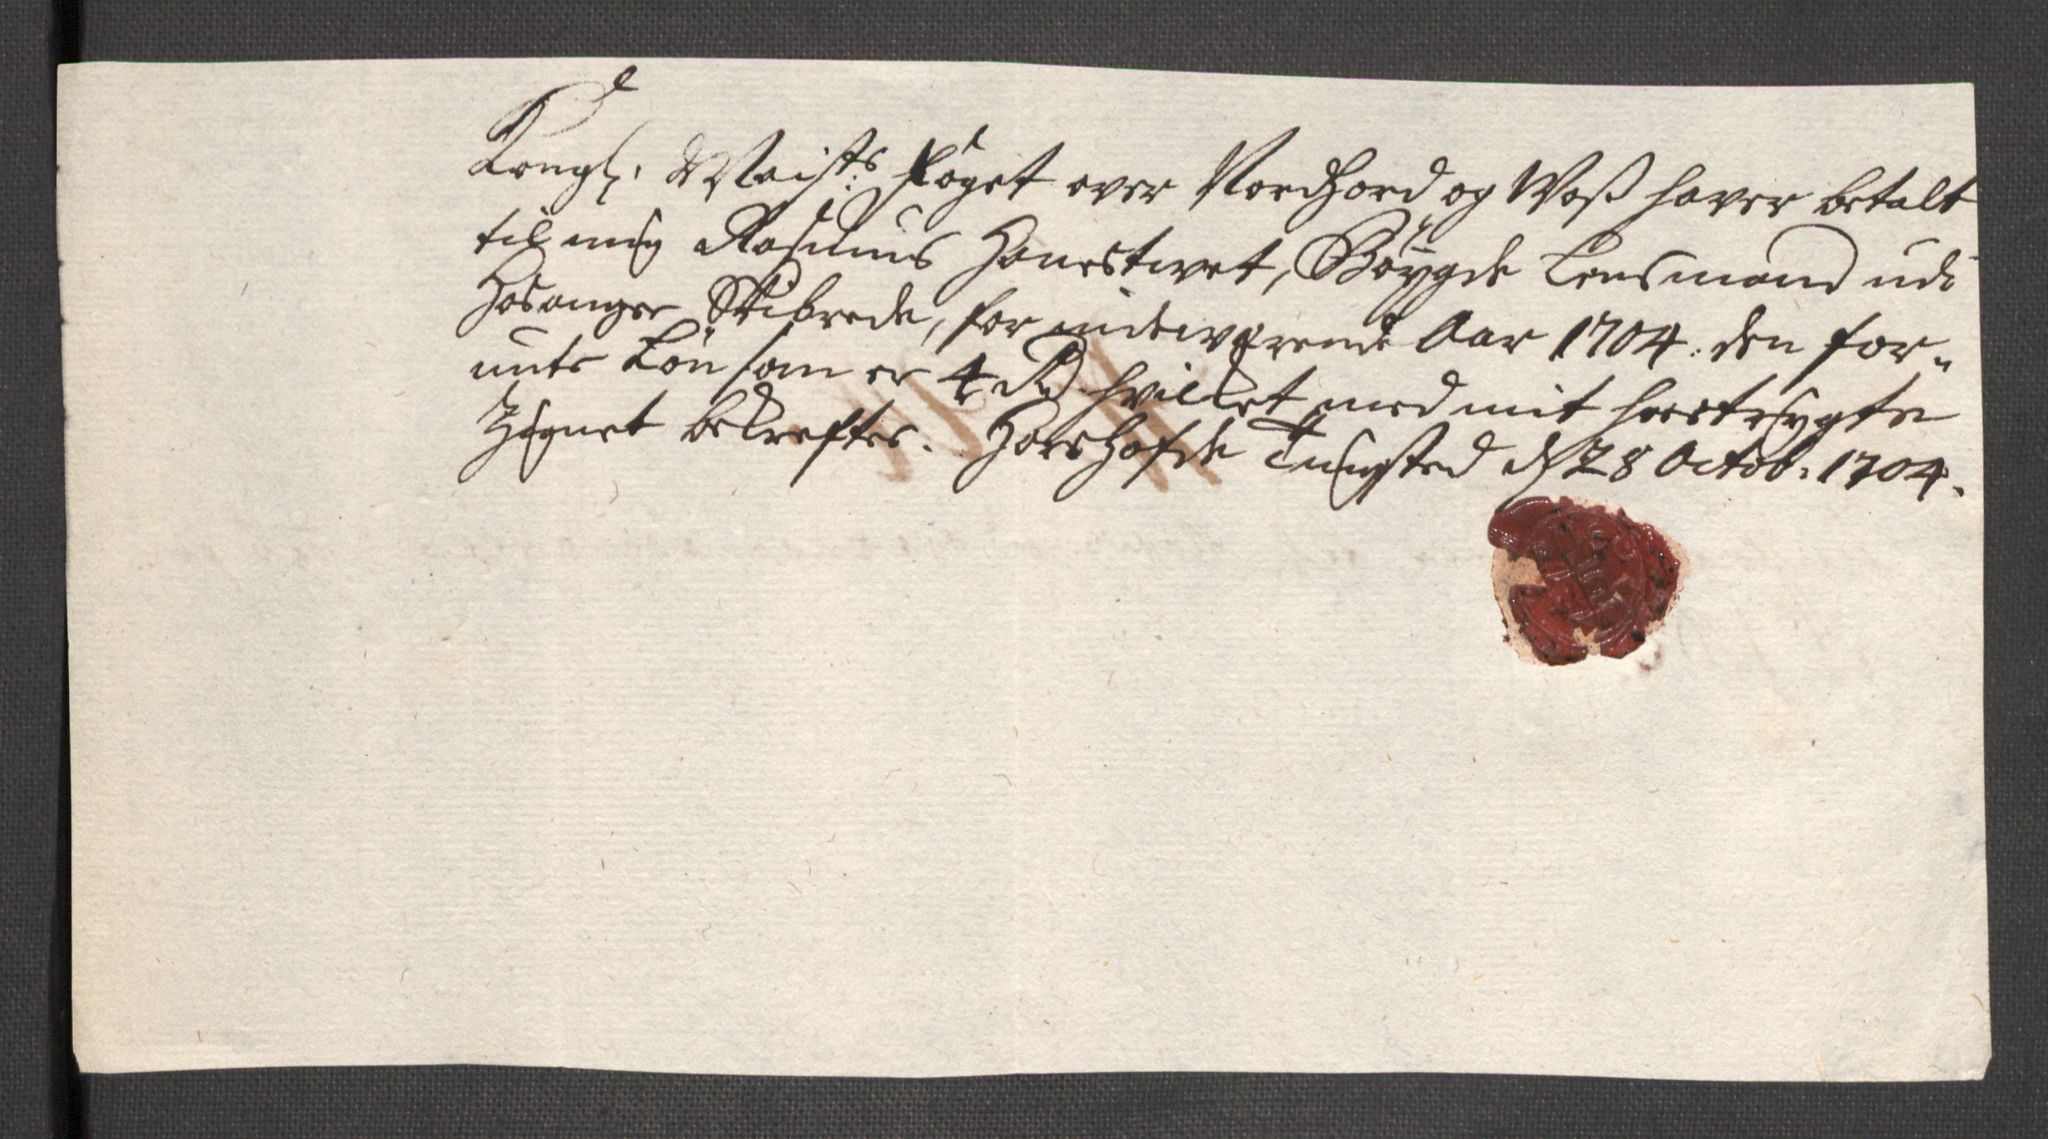 Kongl. Maists. Foget over Nordhord og Woß haver betalt
til mig Rasmus Hanestvet, Böygde Lensmand udi
Hosanger Skibrede, for indeværende Aar 1704. den for-
unte Lön som er 4 Rd. hvilket med mit hostrygte
Zignet bekreftes. Tingsted d. 28 Octob: 1704.